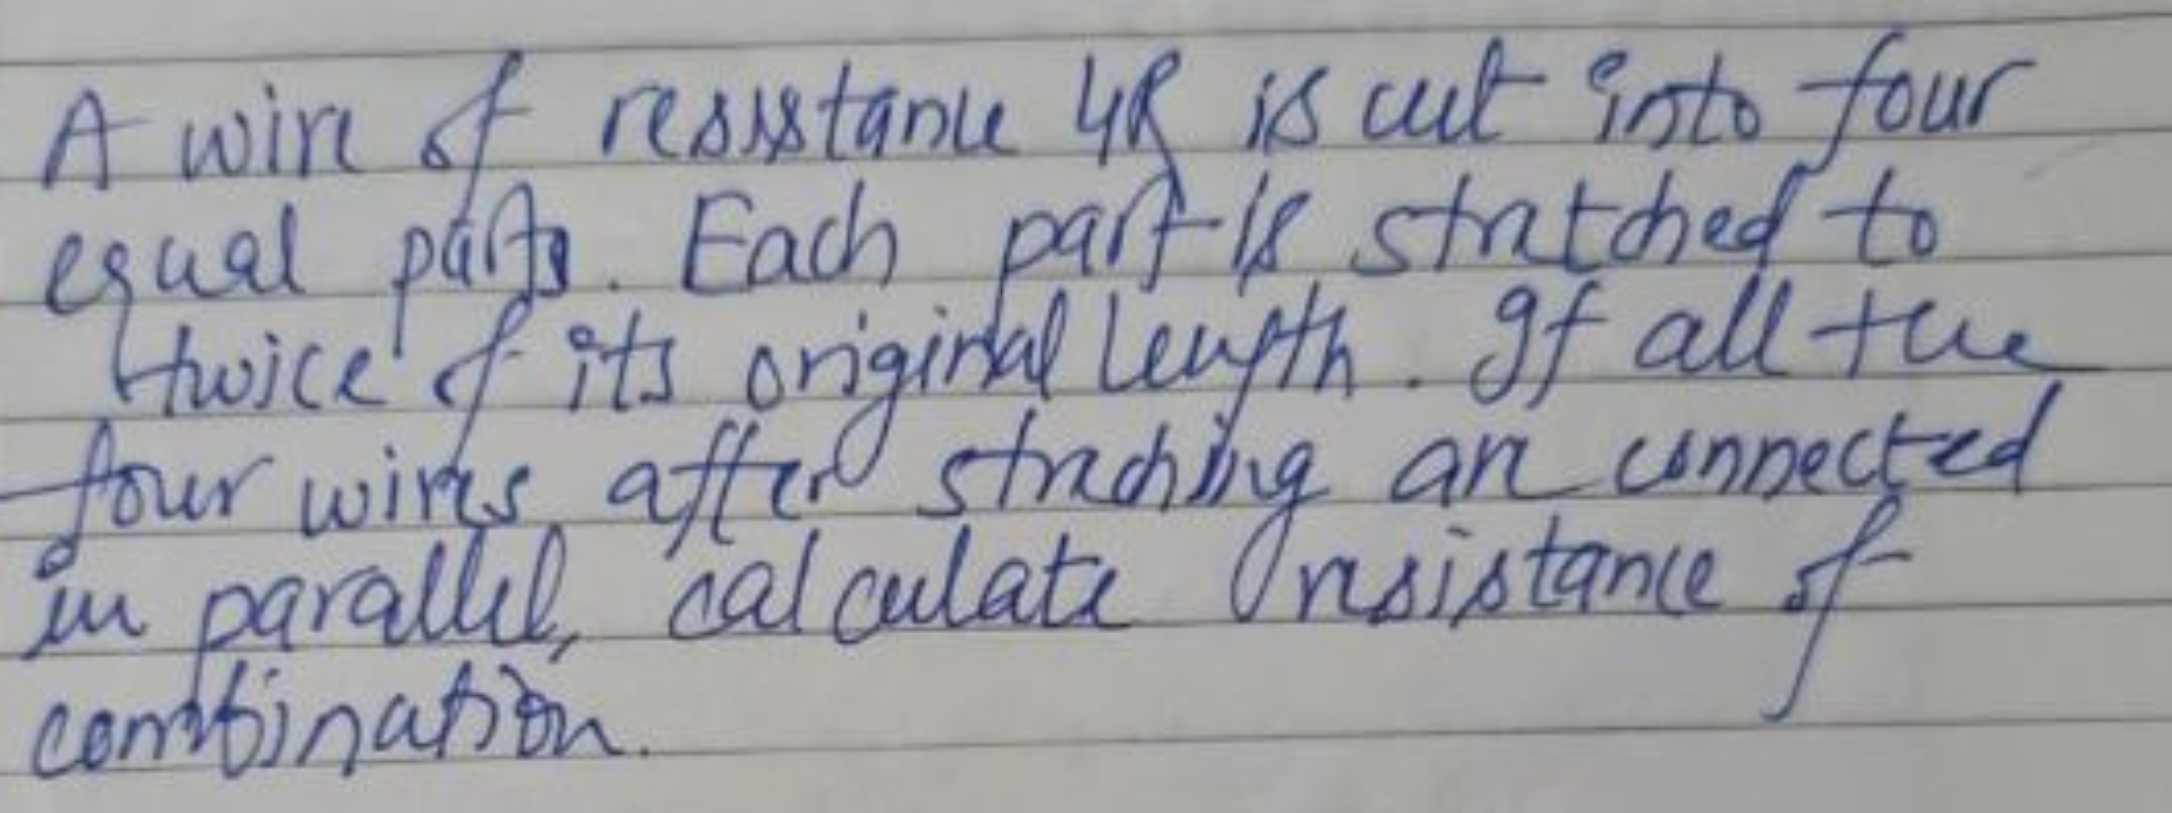 A wire of resistance 4R is cut into four
equal parts. Each part is stratched to
twice of its original length. If all the
four wires after straching are connected
in parallel, calculate resistance of
combination.